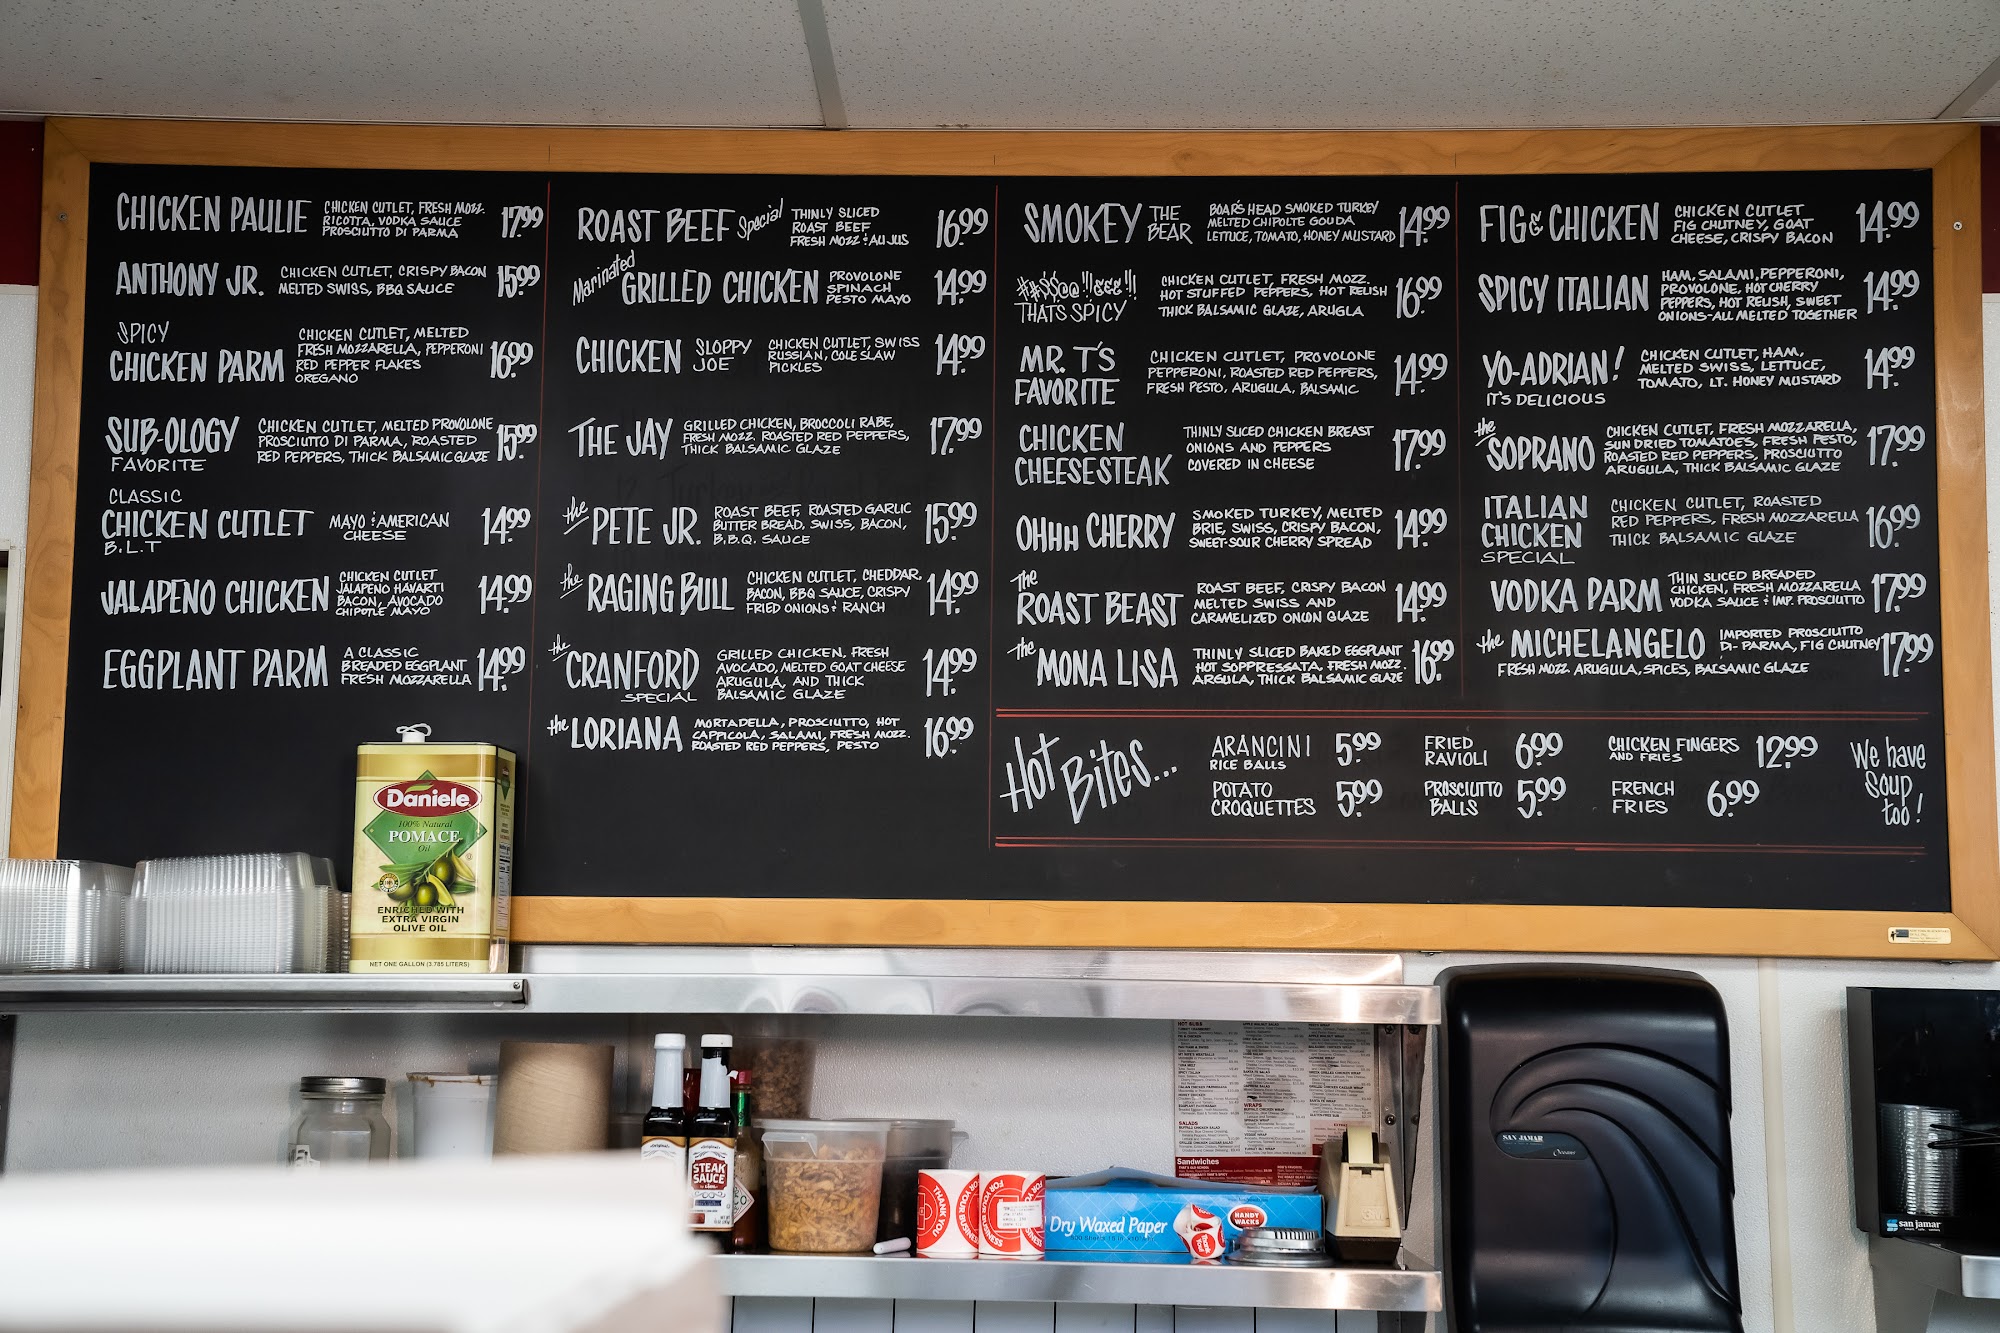 CHICKEN PAULIE CHICKEN CUTLET, FRESH MOZZ. 17.99
RICOTTA, VODKA SAUCE
PROSCIUTTO DI PARMA
ANTHONY JR. CHICKEN CUTLET, CRISPY BACON 15.99
MELTED SWISS, BBQ SAUCE
SPICY
CHICKEN PARM CHICKEN CUTLET, MELTED 16.99
FRESH MOZZARELLA, PEPPERONI
RED PEPPER FLAKES
OREGANO
SUB-OLOGY CHICKEN CUTLET, MELTED PROVOLONE 15.99
FAVORITE PROSCIUTTO DI PARMA, ROASTED
RED PEPPERS, THICK BALSAMIC GLAZE
CLASSIC
CHICKEN CUTLET MAYO & AMERICAN 14.99
B.L.T CHEESE
JALAPENO CHICKEN CHICKEN CUTLET 14.99
JALAPENO HAVARTI
BACON, AVOCADO
CHIPOTLE MAYO
EGGPLANT PARM A CLASSIC 14.99
BREADED EGGPLANT
FRESH MOZZARELLA
ROAST BEEF Special THINLY SLICED 16.99
ROAST BEEF
FRESH MOZZ & AU JUS
Marinated
GRILLED CHICKEN PROVOLONE 14.99
SPINACH
PESTO MAYO
CHICKEN SLOPPY JOE CHICKEN CUTLET, SWISS 14.99
RUSSIAN, COLE SLAW
PICKLES
THE JAY GRILLED CHICKEN, BROCCOLI RABE, 17.99
FRESH MOZZ. ROASTED RED PEPPERS,
THICK BALSAMIC GLAZE
the PETE JR. ROAST BEEF, ROASTED GARLIC 15.99
BUTTER BREAD, SWISS, BACON,
B.B.Q. SAUCE
the RAGING BULL CHICKEN CUTLET, CHEDDAR, 14.99
BACON, BBQ SAUCE, CRISPY
FRIED ONIONS & RANCH
the CRANFORD GRILLED CHICKEN, FRESH 14.99
SPECIAL AVOCADO, MELTED GOAT CHEESE
ARUGULA, AND THICK
BALSAMIC GLAZE
the LORIANA MORTADELLA, PROSCIUTTO, HOT 16.99
CAPPICOLA, SALAMI, FRESH MOZZ.
ROASTED RED PEPPERS, PESTO
SMOKEY THE BEAR BOARS HEAD SMOKED TURKEY 14.99
MELTED CHIPOLTE GOUDA
LETTUCE, TOMATO, HONEY MUSTARD
#*$$@@!!&&&!! CHICKEN CUTLET, FRESH MOZZ. 16.99
THATS SPICY HOT STUFFED PEPPERS, HOT RELISH
THICK BALSAMIC GLAZE, ARUGLA
MR. T'S CHICKEN CUTLET, PROVOLONE 14.99
FAVORITE PEPPERONI, ROASTED RED PEPPERS,
FRESH PESTO, ARUGULA, BALSAMIC
CHICKEN THINLY SLICED CHICKEN BREAST 17.99
CHEESESTEAK ONIONS AND PEPPERS
COVERED IN CHEESE
OHHH CHERRY SMOKED TURKEY, MELTED 14.99
BRIE, SWISS, CRISPY BACON,
SWEET-SOUR CHERRY SPREAD
The
ROAST BEAST ROAST BEEF, CRISPY BACON 14.99
MELTED SWISS AND
CARAMELIZED ONION GLAZE
The
MONA LISA THINLY SLICED BAKED EGGPLANT 16.99
HOT SOPPRESSATA, FRESH MOZZ.
ARGULA, THICK BALSAMIC GLAZE
FIG & CHICKEN CHICKEN CUTLET 14.99
FIG CHUTNEY, GOAT
CHEESE, CRISPY BACON
SPICY ITALIAN HAM, SALAMI, PEPPERONI, 14.99
PROVOLONE, HOT CHERRY
PEPPERS, HOT RELISH, SWEET
ONIONS-ALL MELTED TOGETHER
YO-ADRIAN! CHICKEN CUTLET, HAM, 14.99
IT'S DELICIOUS MELTED SWISS, LETTUCE,
TOMATO, LT. HONEY MUSTARD
the SOPRANO CHICKEN CUTLET, FRESH MOZZARELLA, 17.99
SUN DRIED TOMATOES, FRESH PESTO,
ROASTED RED PEPPERS, PROSCIUTTO
ARUGULA, THICK BALSAMIC GLAZE
ITALIAN CHICKEN CUTLET, ROASTED 16.99
CHICKEN RED PEPPERS, FRESH MOZZARELLA
SPECIAL THICK BALSAMIC GLAZE
VODKA PARM THIN SLICED BREADED 17.99
CHICKEN, FRESH MOZZARELLA
VODKA SAUCE & IMP. PROSCIUTTO
the MICHELANGELO IMPORTED PROSCIUTTO 17.99
DI-PARMA, FIG CHUTNEY
FRESH MOZZ. ARUGULA, SPICES, BALSAMIC GLAZE
Hot Bites...
ARANCINI 5.99
RICE BALLS
FRIED 6.99
RAVIOLI
CHICKEN FINGERS 12.99
AND FRIES
POTATO 5.99
CROQUETTES
PROSCIUTTO 5.99
BALLS
FRENCH 6.99
FRIES
We have
Soup
too!
Daniele
100% Natural
POMACE
Oil
ENRICHED WITH
EXTRA VIRGIN
OLIVE OIL
NET ONE GALLON (3.785 LITERS)
HOT SUBS
SALADS
WRAPS
Sandwiches
STEAK
SAUCE
THANK YOU
FOR YOUR BUSINESS
FOR YOUR BUSINESS
Dry Waxed Paper
HANDY
WACKS
3M
SAN JAMAR
Oceans
san jamar